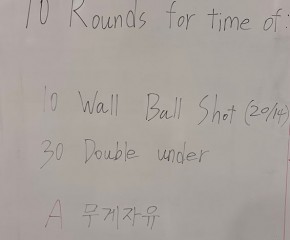 10 Rounds for time of:
10 Wall Ball Shot (20/14)
30 Double under
A 무게자유